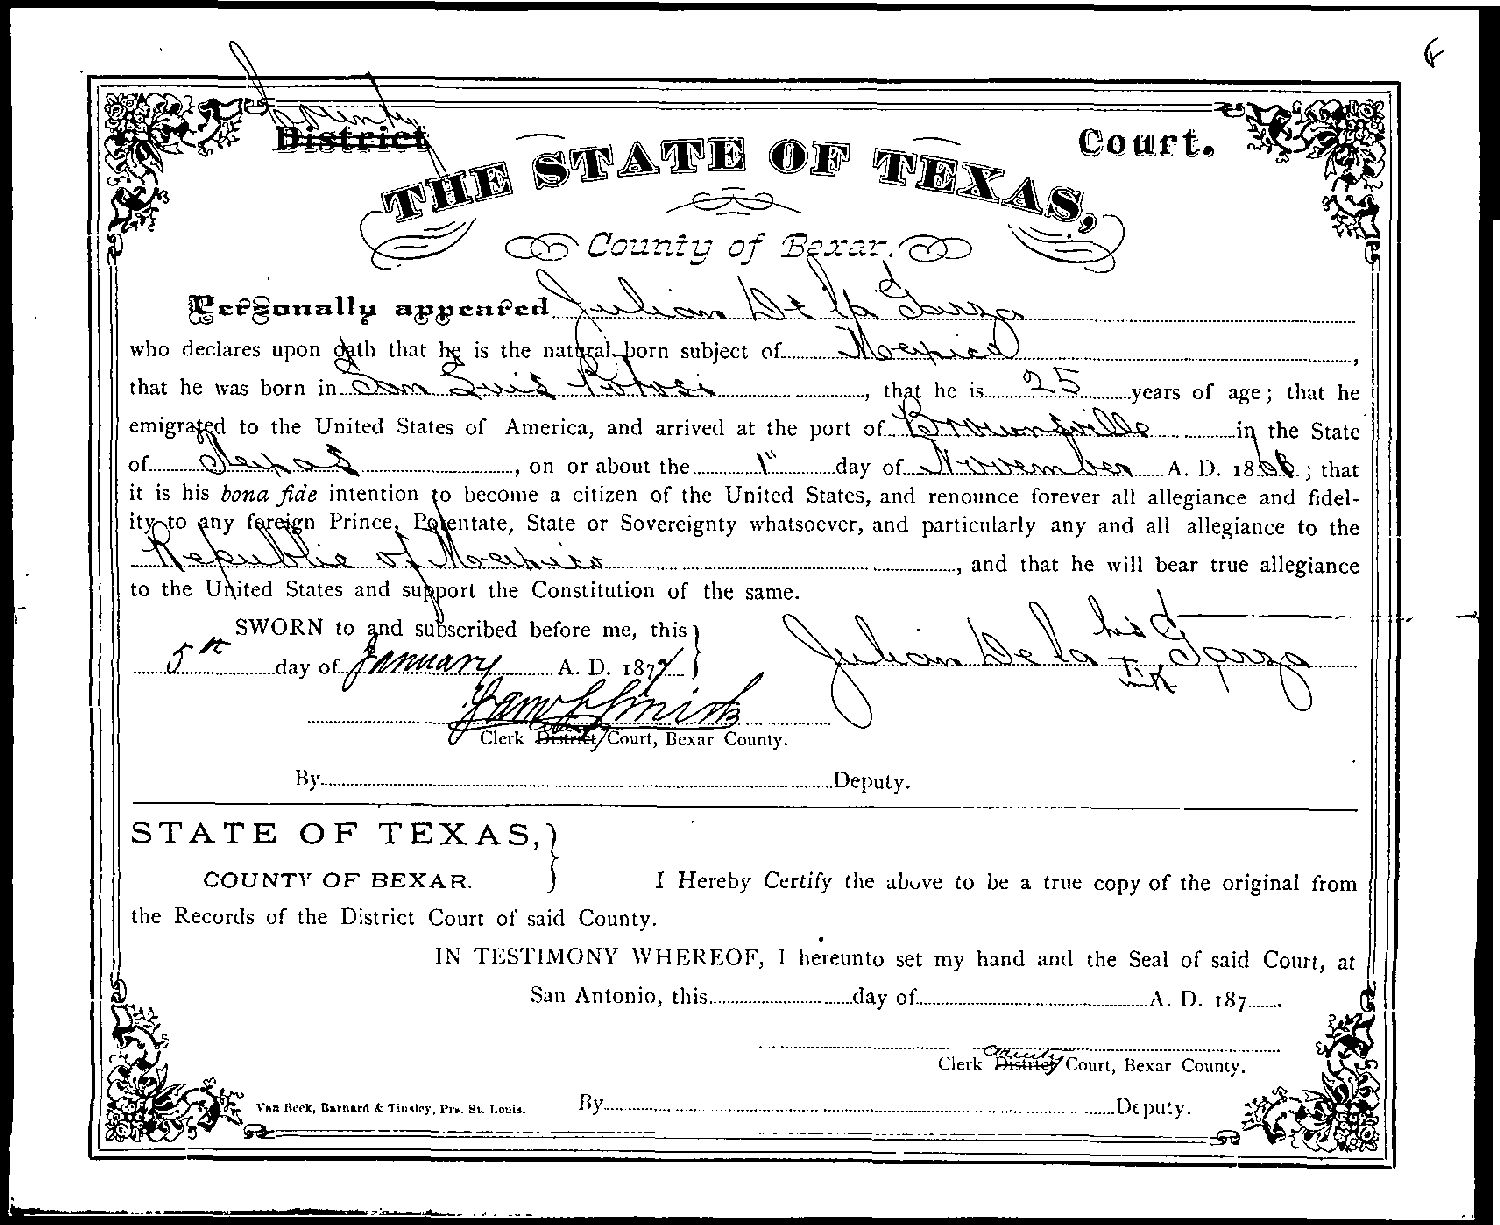 County
District Court.
THE STATE OF TEXAS,
County of Bexar.
Personally appeared Julian De la Garza
who declares upon oath that he is the natural born subject of Mexico,
that he was born in San Luis Potosi, that he is 25 years of age; that he
emigrated to the United States of America, and arrived at the port of Brownsville in the State
of Texas, on or about the 1st day of November A. D. 186; that
it is his bona fide intention to become a citizen of the United States, and renounce forever all allegiance and fidel-
ity to any foreign Prince, Potentate, State or Sovereignty whatsoever, and particularly any and all allegiance to the
Republic of Mexico, and that he will bear true allegiance
to the United States and support the Constitution of the same.
SWORN to and subscribed before me, this
5th day of January A. D. 187
his
Julian De la + Garza
Clerk District Court, Bexar County.
By Deputy.
STATE OF TEXAS,
COUNTY OF BEXAR.
I Hereby Certify the above to be a true copy of the original from
the Records of the District Court of said County.
IN TESTIMONY WHEREOF, I hereunto set my hand and the Seal of said Court, at
San Antonio, this day of A. D. 187 .
County
Clerk District Court, Bexar County.
Van Beek, Barnard & Tinsley, Prs. St. Louis.
By Deputy.